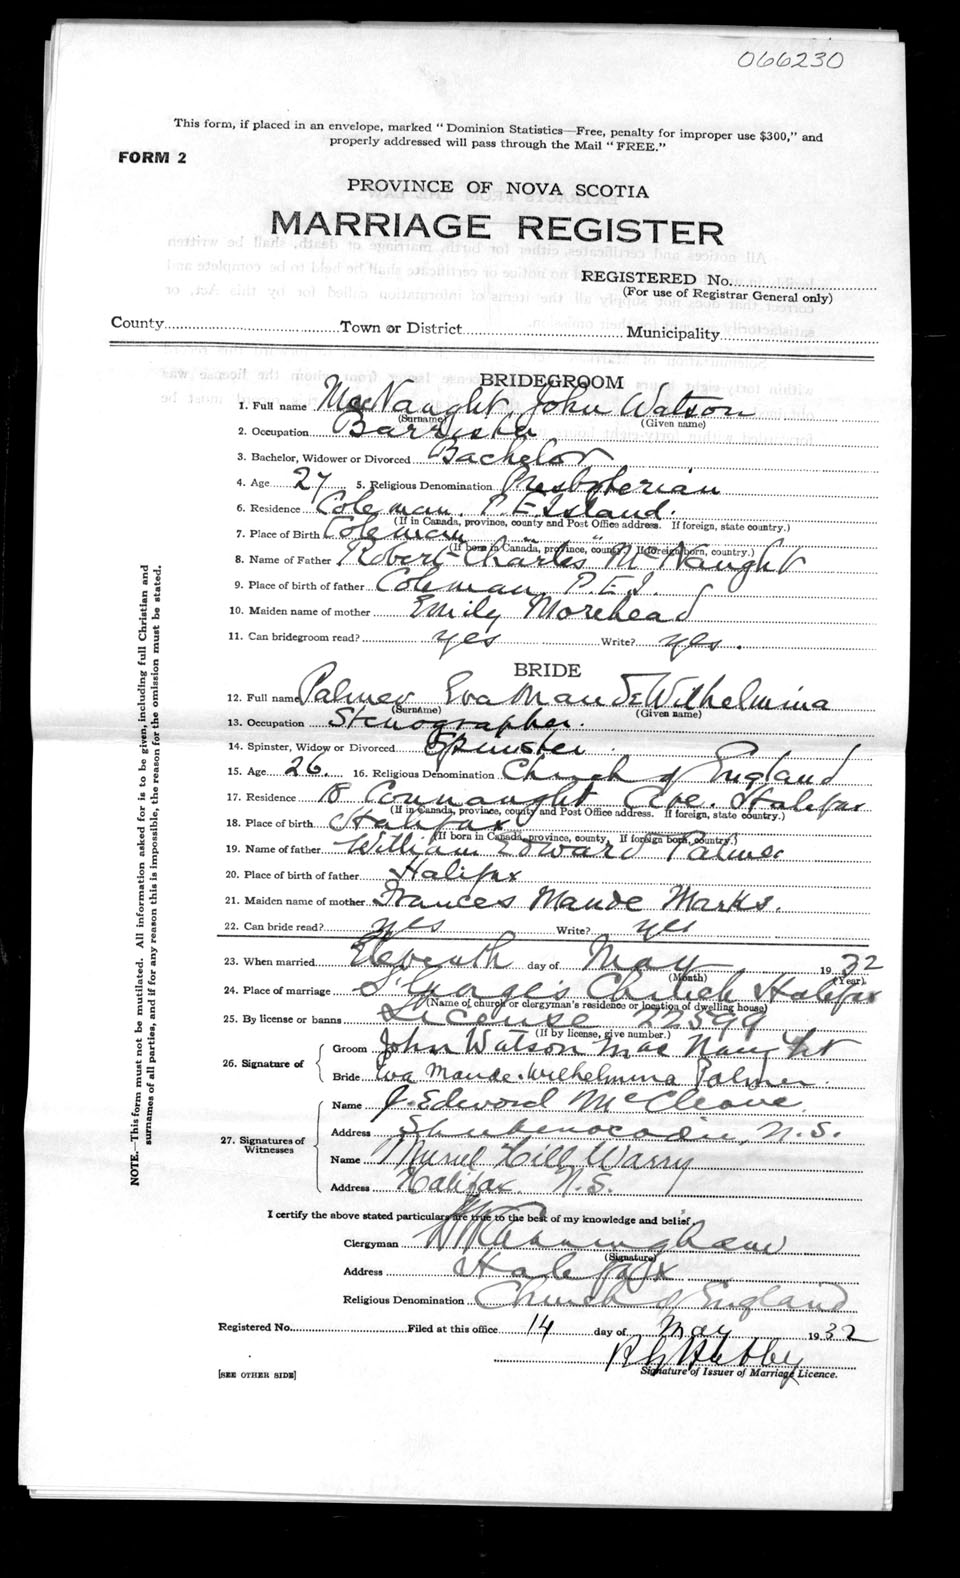 066230
This form, if placed in an envelope, marked "Dominion Statistics—Free, penalty for improper use $300," and
properly addressed will pass through the Mail "FREE."
FORM 2
PROVINCE OF NOVA SCOTIA
MARRIAGE REGISTER
REGISTERED No.
(For use of Registrar General only)
County Town or District Municipality
BRIDEGROOM
1. Full name MacNaught, John Watson
(Surname) (Given name)
2. Occupation Barrister
3. Bachelor, Widower or Divorced Bachelor
4. Age 27 5. Religious Denomination Presbyterian
6. Residence Coleman, P.E. Island.
(If in Canada, province, county and Post Office address. If foreign, state country.)
7. Place of Birth Coleman " "
(If born in Canada, province, county. If foreign born, country.)
8. Name of Father Robert Charles McNaught
9. Place of birth of father Coleman, P.E.I.
10. Maiden name of mother Emily Morehead
11. Can bridegroom read? yes Write? yes.
BRIDE
12. Full name Palmer Eva Maude Wilhelmina
(Surname) (Given name)
13. Occupation Stenographer.
14. Spinster, Widow or Divorced Spinster.
15. Age 26. 16. Religious Denomination Church of England
17. Residence 18 Connaught Ave. Halifax
(If in Canada, province, county and Post Office address. If foreign, state country.)
18. Place of birth Halifax
(If born in Canada, province, county. If foreign born, country.)
19. Name of father William Edward Palmer
20. Place of birth of father Halifax
21. Maiden name of mother Frances Maude Marks.
22. Can bride read? yes Write? yes
23. When married Eleventh day of May 1932
(Month) (Year)
24. Place of marriage St George's Church Halifax
(Name of church or clergyman's residence or location of dwelling house)
25. By license or banns License 22599
(If by license, give number.)
26. Signature of Groom John Watson MacNaught
Bride Eva Maude Wilhelmina Palmer.
27. Signatures of Witnesses
Name J. Edward McCleave
Address Shubenacadie, N.S.
Name Muriel Hill Warry
Address Halifax N.S.
I certify the above stated particulars are true to the best of my knowledge and belief.
Clergyman Cunningham
(Signature)
Address Halifax
Religious Denomination Church of England
Registered No. Filed at this office 14 day of May 1932
Signature of Issuer of Marriage Licence.
[SEE OTHER SIDE]
NOTE.—This form must not be mutilated. All information asked for is to be given, including full Christian and
surnames of all parties, and if for any reason this is impossible, the reason for the omission must be stated.